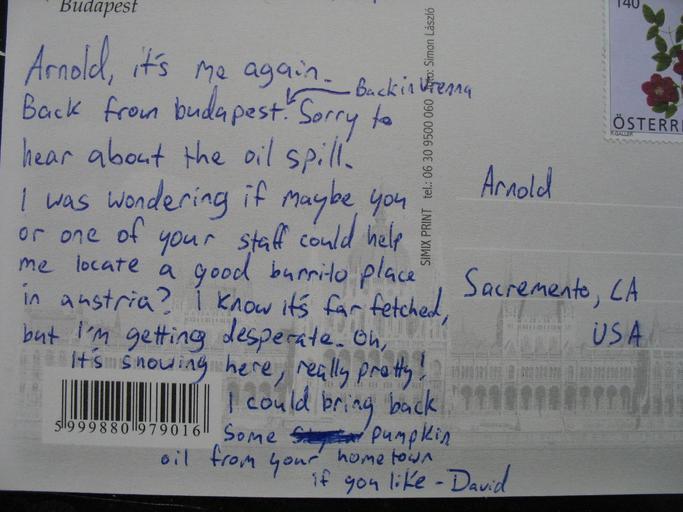 Budapest
Arnold, it's me again.
Back from budapest. Sorry to
Back in Vienna
hear about the oil spill.
I was wondering if maybe you
or one of your staff could help
me locate a good burrito place
in austria? I know it's far fetched,
but I'm getting desperate. Oh,
It's snowing here, really pretty!
I could bring back
some pumpkin
oil from your hometown
if you like - David
5 999880 979016
SIMIX PRINT tel.: 06 30 9500 060 Fotó: Simon László
140
ÖSTERR
Arnold
Sacremento, CA
USA